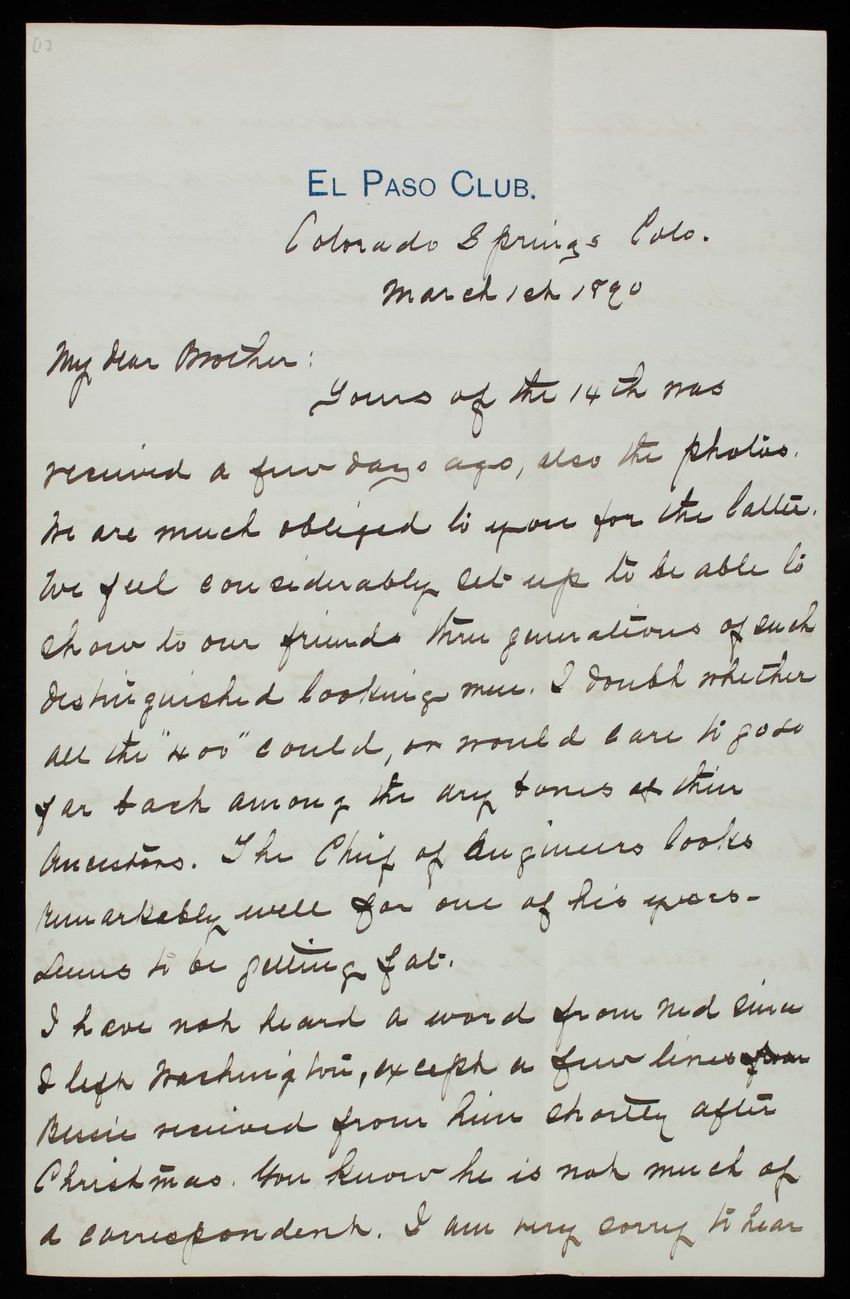 [1]
EL PASO CLUB.
Colorado Springs Colo.
March 1st 1890
My dear Brother:
Yours of the 14th was
received a few days ago, also the photos.
We are much obliged to you for the latter.
We feel considerably set up to be able to
show to our friends three generations of such
distinguished looking men. I doubt whether
all the "400" could, or would care to go so
far back among the dry bones of their
Ancestors. The Chief of Engineers looks
remarkably well for one of his years-
Seems to be getting fat.
I have not heard a word from Ned since
I left Washington, except a few lines from
Bessie received from him shortly after
Christmas. You know he is not much of
a correspondent. I am very sorry to hear